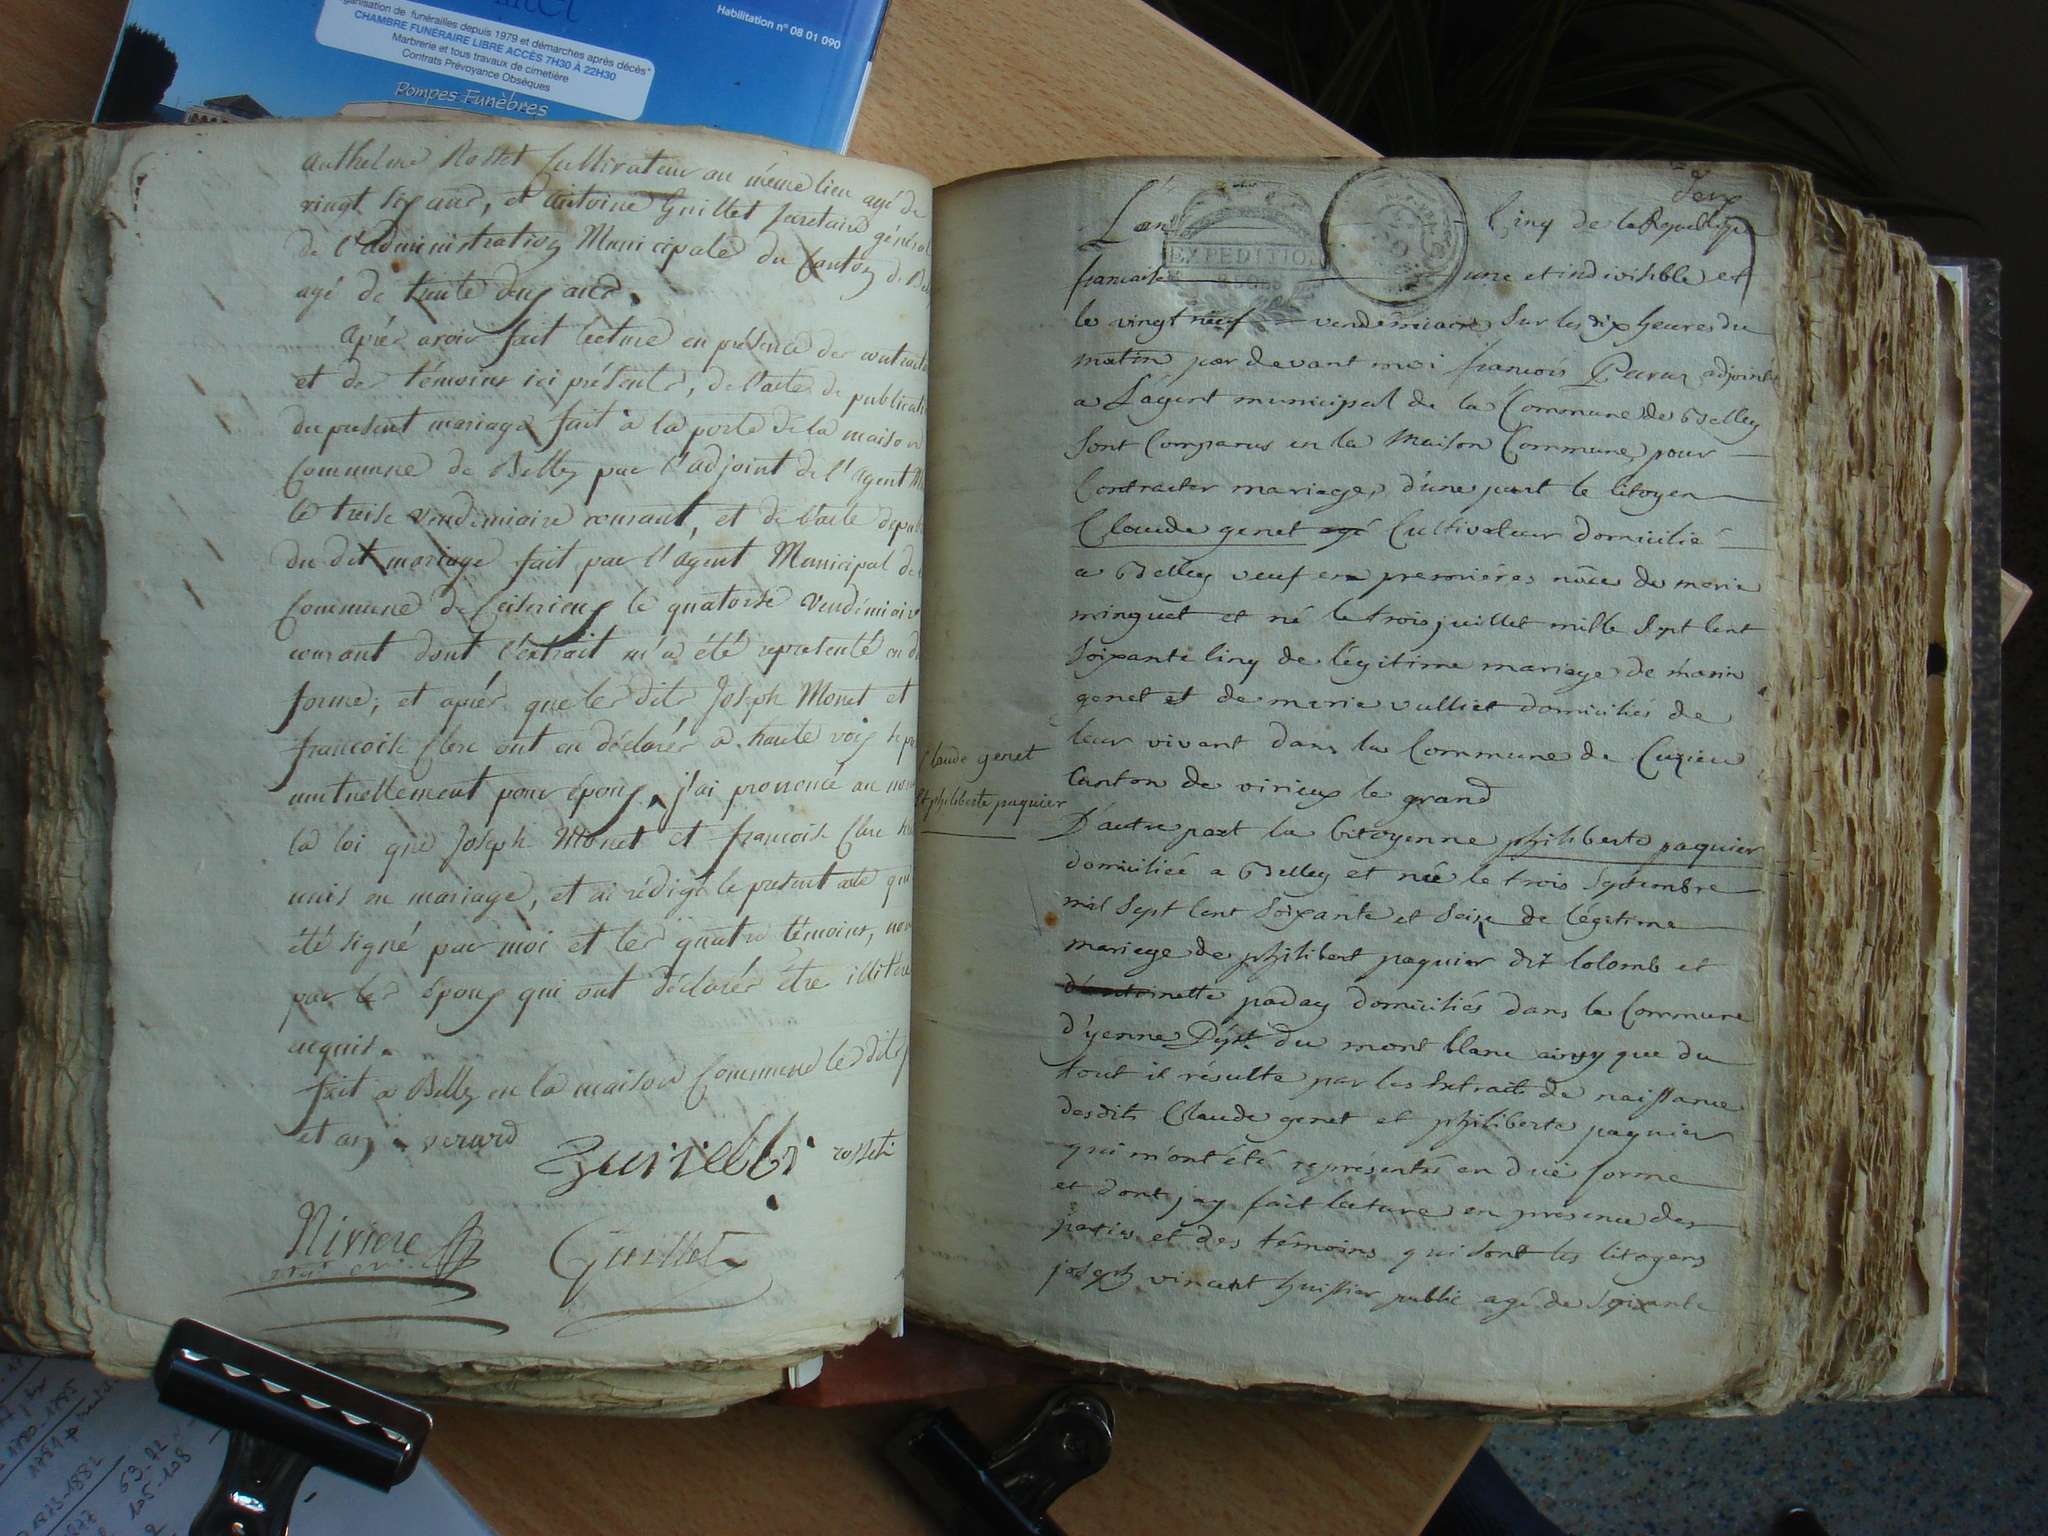 Habilitation n° 08 01 090
organisation de funérailles depuis 1979 et démarches après décès*
CHAMBRE FUNÉRAIRE LIBRE ACCÈS 7H30 À 22H30
Marbrerie et tous travaux de cimetière
Contrats Prévoyance Obsèques
Pompes Funèbres
anthelme Rostet Cultivateur au même lieu agé de
vingt six ans, et antoine Guillet secretaire général
de l'administration Municipale du Canton de
agé de trente deux ans.
après avoir fait lecture en présence des
et des témoins ici présents, de l'acte de
du present mariage fait à la porte de la maison
Commune de Belley par l'adjoint de l'agent
le treise vendémiaire courant, et de l'acte
du dit mariage fait par l'agent Municipal de
Commune de le quatorse vendémiaire
courant dont l'extrait m'a été représenté en
forme; et après que les dits Joseph Monet et
francoise Clerc ont eu déclarés à haute voix
mutuellement pour époux, j'ai prononcé au nom
la loi que Joseph Monet et francoise Clerc
unis en mariage, et ai rédigé le présent acte qui
été signé par moi et les quatre témoins, non
par les époux qui ont déclarés être
acquis.
fait à Belley en la maison Commune les dits
et an. verard
rosset
Riviere
Guillet
deux
L'an Cinq de la Republique
EXPEDITION
francaise une et indivisible et
le vingt neuf vendémiaire sur les dix heures du
matin par devant moi francois adjoint
a L'agent municipal de la Commune de Belley
Sont Comparus en la Maison Commune pour
Contracter mariage, d'une part le Citoyen
Claude genet agé Cultivateur domicilié
a Belley veuf en premières nôce de marie
minguet et né le trois juillet mille Sept Cent
Soixante Cinq de légitime mariage de marin
genet et de marie vulliet domiciliés de
leur vivant dans la Commune de Cuzieu
Canton de virieux le grand
Claude genet
et philiberte paquier
D'autre part la Citoyenne philiberte paquier
domiciliée a Belley et née le trois Septembre
mil Sept Cent Soixante et Seize de légitime
mariage de philibert paquier dit Colomb et
d'antoinette paday domiciliés dans la Commune
d'yenne Dépt. du mont blanc ainsy que du
tout il résulte par les Extraits de naissance
desdits Claude genet et philiberte paquier
qui m'ont été représentés en due forme
et dont jay fait lecture en présence des
parties et des témoins qui sont les Citoyens
joseph vincent huissier public agé de Soixante